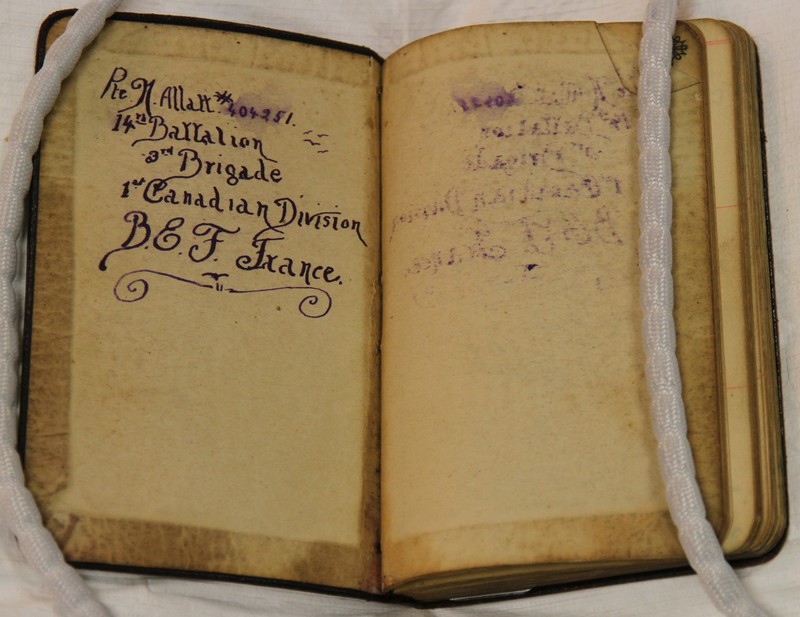 Pte N. Allatt. #404251.
14th Battalion
3rd Brigade
1st Canadian Division
B.E.F. France.